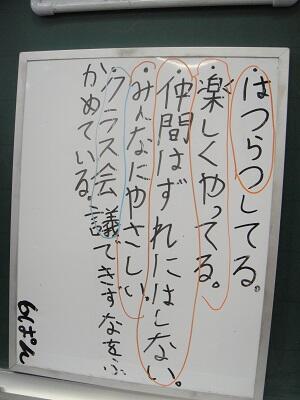 ・はつらつしてる。
・楽しくやってる。
・仲間はずれにはしない。
・みんなにやさしい。
・クラス会議できずなをふ
かめている。
6ぱん